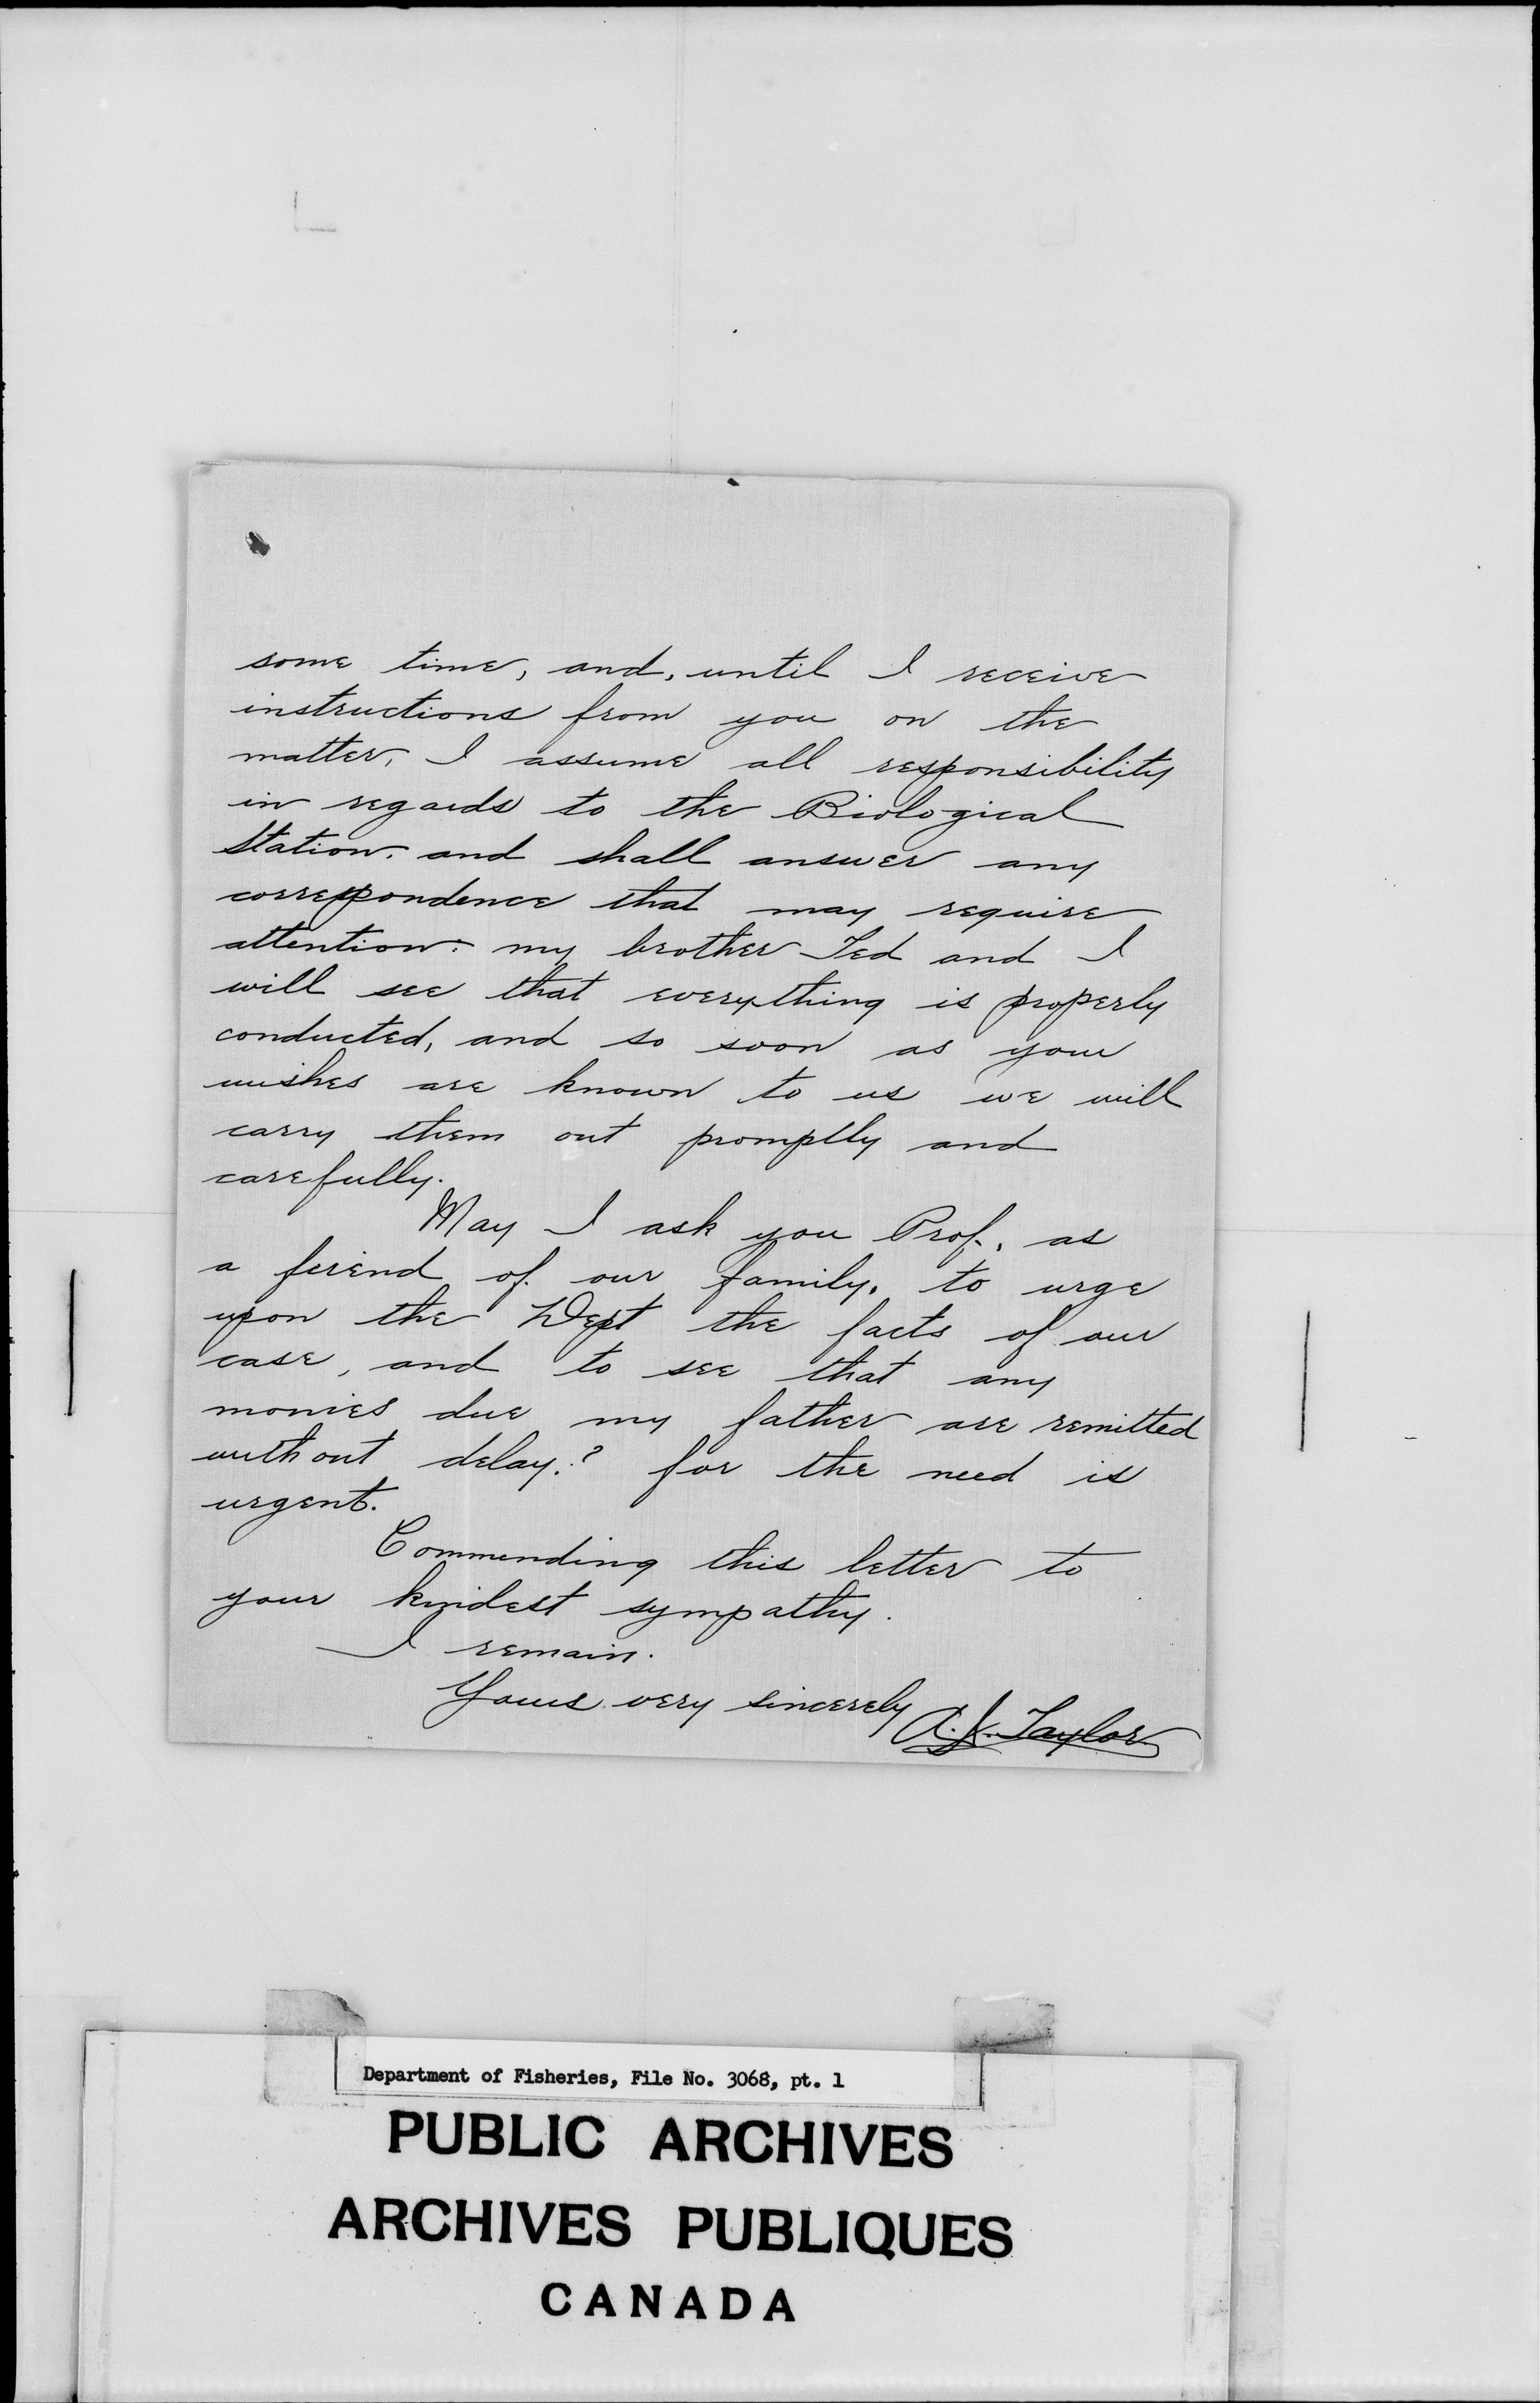 some time, and, until I receive
instructions from you on the
matter, I assume all responsibility
in regards to the Biological
Station, and shall answer any
correspondence that may require
attention: my brother Ted and I
will see that everything is properly
conducted, and so soon as your
wishes are known to us we will
carry them out promptly and
carefully.
May I ask you Prof., as
a freind of our family, to urge
upon the Dept the facts of our
case, and to see that any
monies due my father are remitted
without delay.? for the need is
urgent.
Commending this letter to
your kindest sympathy.
I remain.
Yours very sincerely A. J. Taylor
Department of Fisheries, File No. 3068, pt. 1
PUBLIC ARCHIVES
ARCHIVES PUBLIQUES
CANADA